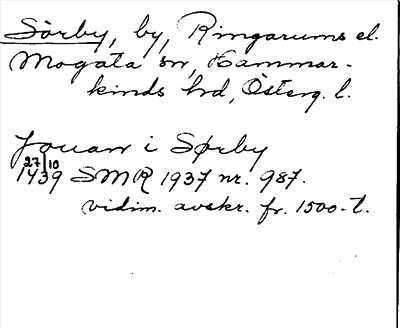 Sörby, by, Ringarums el.
Mogata sn, Hammar-
kinds hd, Österg. l.
Jouan i Sørby
27/10
1439 SMR 1937 nr. 987.
vidim. avskr. fr. 1500-t.